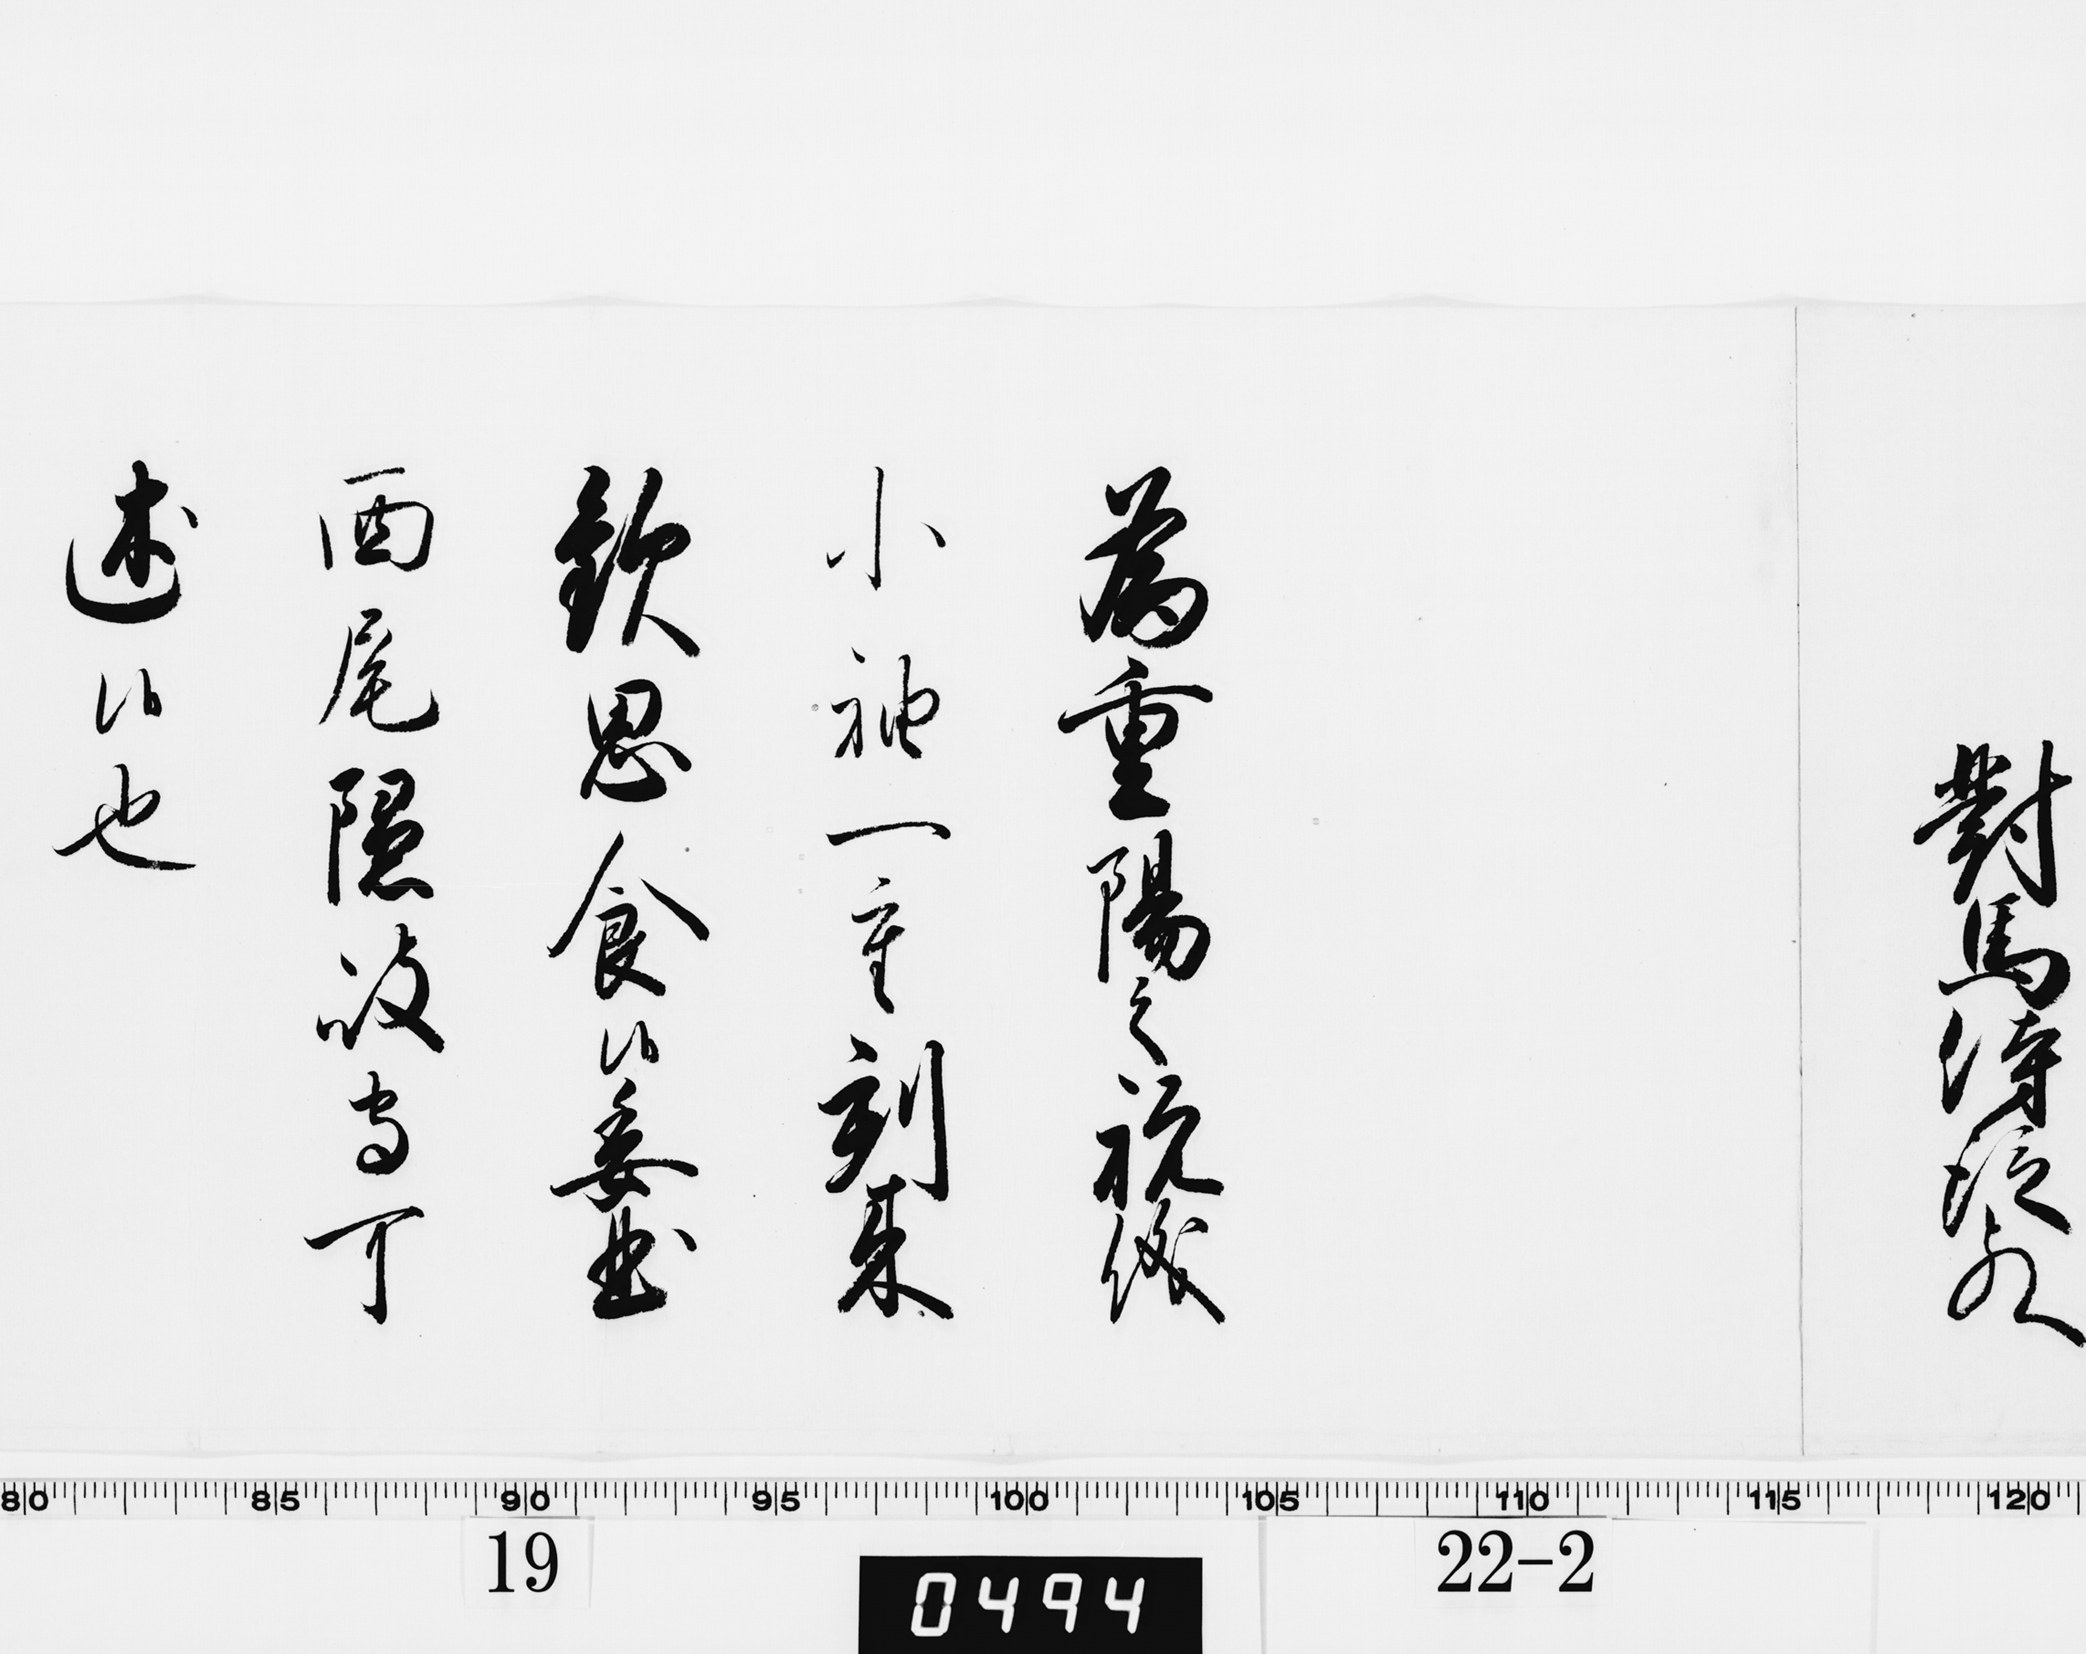 對馬侍従殿
為重陽之祝儀
小袖一重到来
歓思食候委曲
西尾隠岐守可
述候也
80 85 90 95 100 105 110 115 120
19
0494
22-2